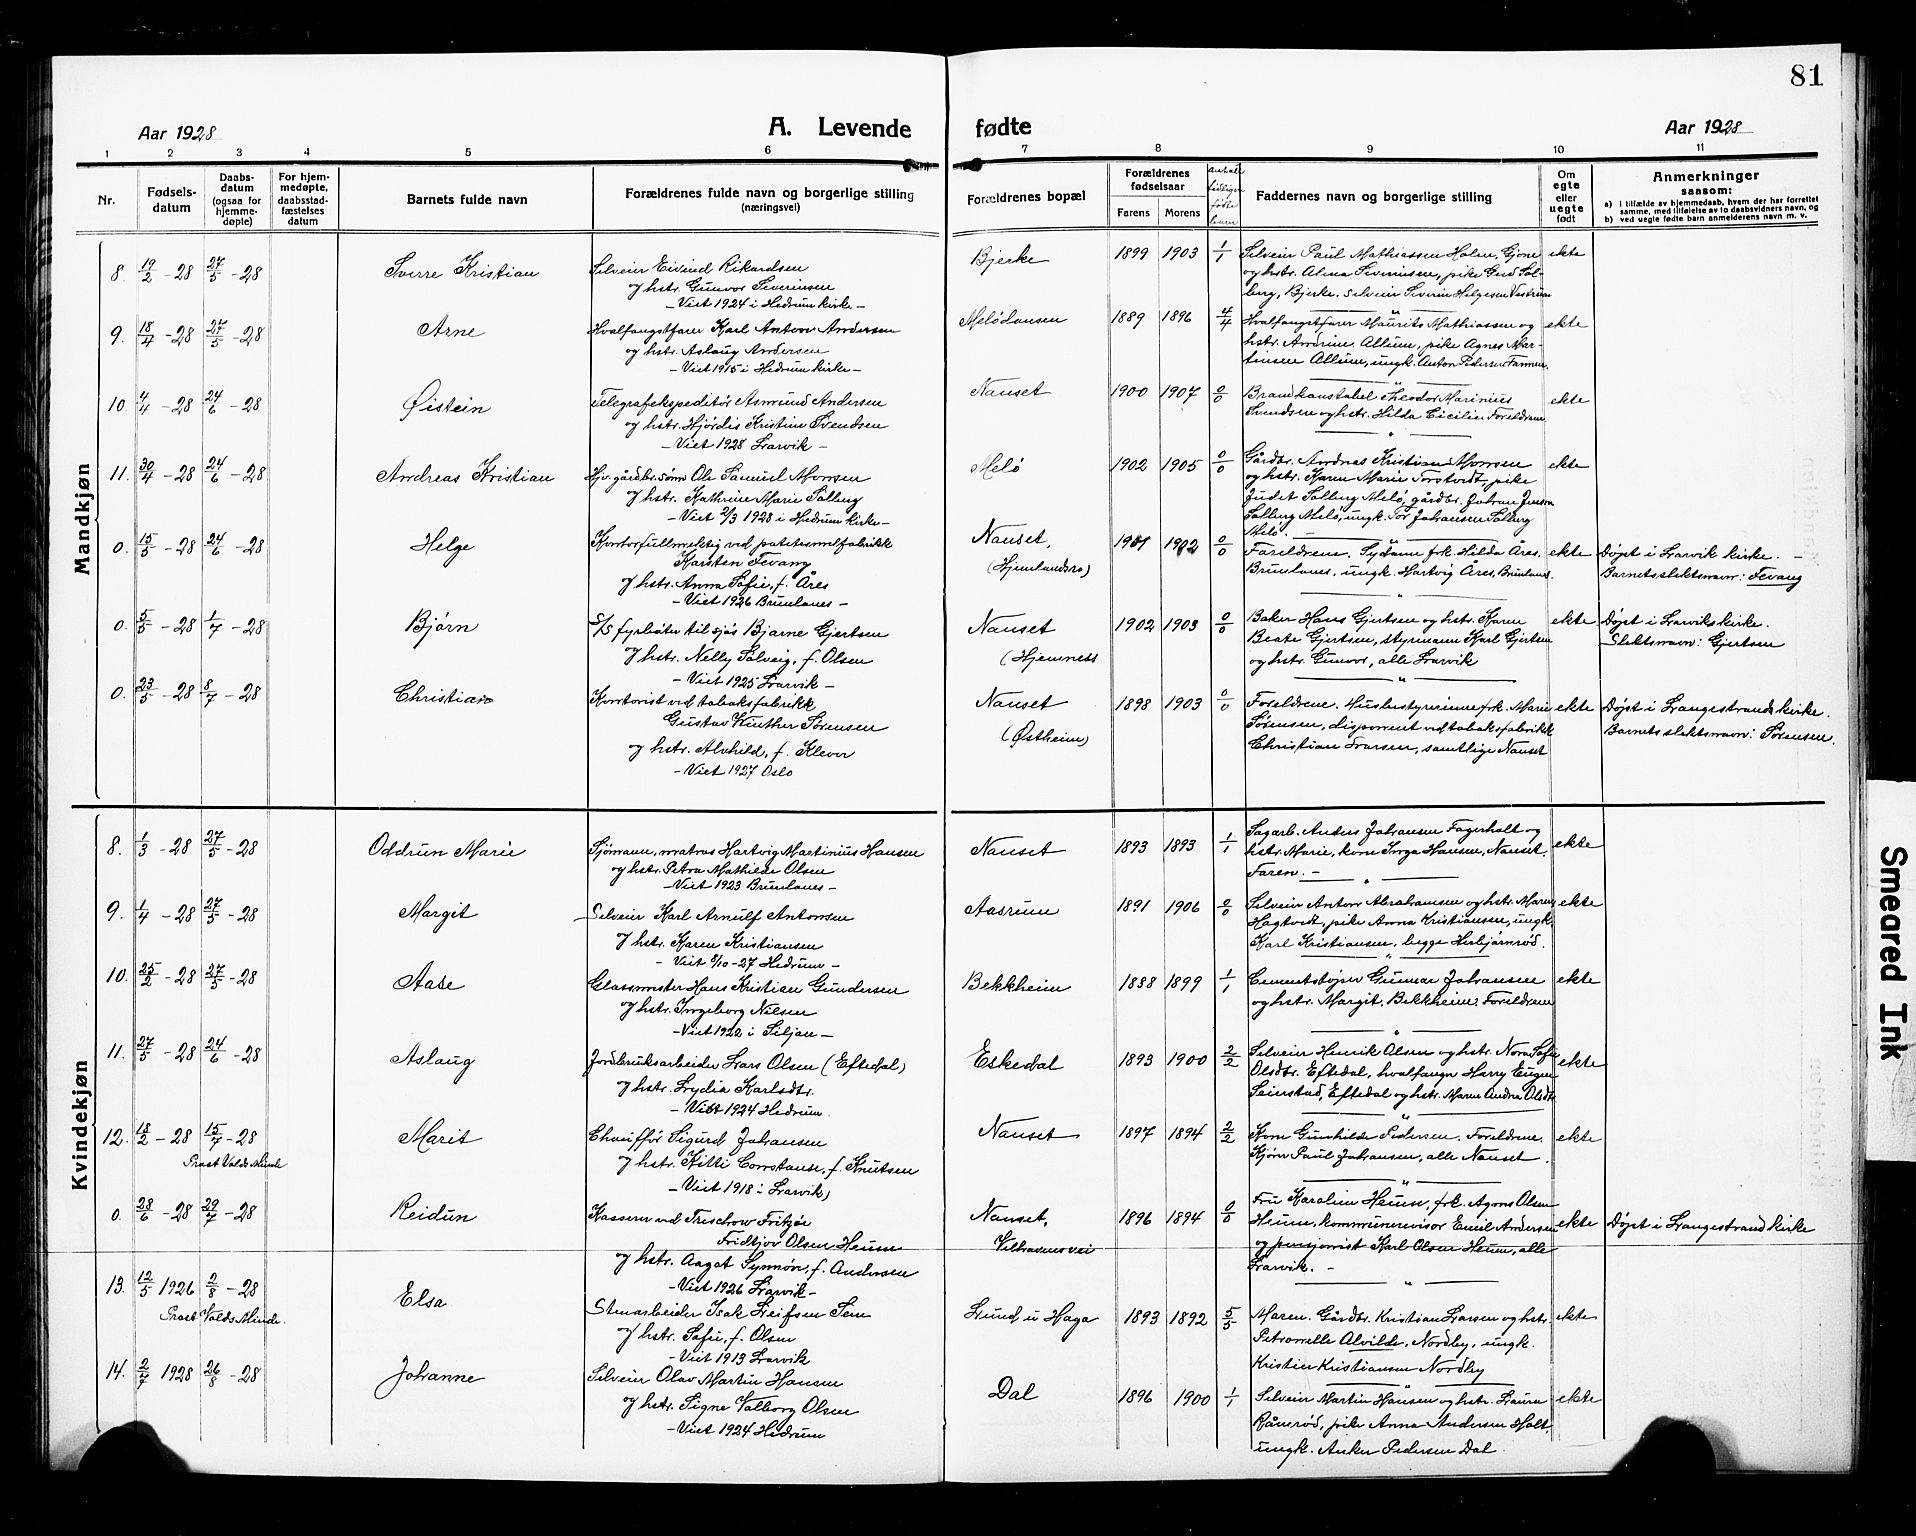 81
Aar 1928
A. Levende
fødte
Aar 1928
1 2 3 4 5 6 7 8 9 10 11
Nr.
Fødsels-
datum
Daabs-
datum
(ogsaa for
hjemme-
døpte)
For hjem-
medøpte,
daabsstad-
fæstelses
datum
Barnets fulde navn
Forældrenes fulde navn og borgerlige stilling
(næringsvei)
Forældrenes bopæl
Forældrenes
fødselsaar
Farens
Morens
Faddernes navn og borgerlige stilling
Om
egte
eller
uegte
født
Anmerkninger
saasom:
a) i tilfælde av hjemmedaab, hvem der har forrettet
samme, med tilføielse av to daabsvidners navn, og
b) ved uegte fødte barn anmelderens navn m. v.
Mandkjøn
8. 19/2 - 28 27/5 - 28 Sverre Kristian
Selveier Eivind Rikardsen
og hstr. Gunvor Severinsen
- Viet 1924 i Hedrum kirke -
Bjerke 1899 1903 1/1
Selveier Paul Mathiassen Holm, Gjone
og hstr. Alma Severinsen, pike Gud Sol-
berg, Bjerke. Selveier Severin Helgesen Vestrum
ekte
9. 18/4 - 28 27/5 - 28 Arne
Hvalfangstfarer Karl Anton Andersen
og hstr. Aslaug Andersen
- Viet 1915 i Hedrum kirke -
Melødansen 1889 1896 4/4
Hvalfangstfarer Maurits Mathiassen og
hstr. Andrine Allum, pike Agnes Mar-
tinsen Allum, ungk. Anton Pedersen Farmen.
ekte
10. 4/4 - 28 24/6 - 28 Øistein
Telegrafekspeditør Asmund Andersen
og hstr. Hjørdis Kristine Svendsen
- Viet 1928 Larvik -
Nanset 1900 1907 0/0
Brandkonstabel Theodor Marinius
Svendsen og hstr. Hilda Cicilie. Foreldrene
ekte
11. 30/4 - 28 24/6 - 28 Andreas Kristian
Hjv. gårdbr. sønn Ole Samuel Momsen
og hstr. Kathrine Marie Solberg
- Viet 2/3 1928 i Hedrum kirke -
Melø 1902 1905 0/0
Gårdbr. Andreas Kristian Momsen
og hstr. Karen Marie Torstvedt, pike
Judet Solberg Melø, gårdbr. Johan Jensen
Solberg Melø, ungk. Tor Johansen Solberg
Melø.
ekte
0. 15/5 - 28 24/6 - 28 Helge
Kontorfullmektig ved potetmelfabrikk
Karsten Fevang
og hstr. Anna Sofie, f. Åres
- Viet 1926 Brunlanes -
Nanset,
(Hjemlandsro) 1901 1902 0/0
Foreldrene. Sydame frk. Hilda Åres,
Brunlanes, ungk. Hartvig Åres, Brunlanes.
ekte
Døpt i Larvik kirke. -
Barnets slektsnavn: Fevang
0. 5/5 - 28 1/7 - 28 Bjørn
S/S fyrbøter til sjøs Bjarne Gjertsen
og hstr. Nelly Solveig, f. Olsen
- Viet 1925 Larvik -
Nanset
(Hjemnets 1902 1903 0/0
Baker Hans Gjertsen og hstr. Karen
Beate Gjertsen, styrmann Karl Gjertsen
og hstr. Gunvor, alle Larvik
ekte
Døpt i Larviks kirke.
Slektsnavn: Gjertsen
0. 23/5 - 28 8/7 - 28 Christian
Kontorist ved tobaksfabrikk
Gustav Kinther Sørensen
og hstr. Alvhild, f. Klever
- Viet 1927 Oslo
Nanset
(Østheim) 1898 1903 0/0
Foreldrene. Husbestyrerinne frk. Marie
Sørensen, disponent ved tobaksfabrikk
Christian Larsen, samtlige Nanset
ekte
Døpt i Langestrands kirke.
Barnets slektsnavn: Sørensen.
Kvindekjøn
8. 1/3 - 28 27/5 - 28 Oddrun Marie
Sjømann, matros Hartvig Martinius Hansen
og hstr. Petra Mathilde Olsen
- Viet 1923 Brunlanes -
Nanset 1893 1893 1/1
Sagarb. Anders Johansen Fagerholt og
hstr. Marie, kone Inga Hansen, Nanset.
Faren. -
ekte
9. 1/4 - 28 27/5 - 28 Margit
Selveier Karl Arnulf Antonsen
og hstr. Karen Kristiansen
- Viet 8/10 - 27 Hedrum -
Aasrum 1891 1906 0/0
Selveier Anton Abrahamsen og hstr. Maren
Hagtvedt, pike Anna Kristiansen, ungk.
Karl Kristiansen, begge Herbjørnrød.
ekte
10. 25/2 - 28 27/5 - 28 Aase
Glassmester Hans Kristian Gundersen
og hstr. Ingeborg Nilsen
- Viet 1922 i Siljan -
Bekkheim 1888 1899 1/1
Cementstøper Gunnar Johansen
og hstr. Margit, Bekkheim. Foreldrene
ekte
11. 27/5 - 28 24/6 - 28 Aslaug
Jordbruksarbeider Lars Olsen (Eftedal)
og hstr. Lydia Karlsdtr.
- Viet 1924 Hedrum
Eskedal 1893 1900 2/2
Selveier Henrik Olsen og hstr. Nora Sofie
Olsdtr. Eftedal, hvalfangn Harry Eugen
Seierstad, Eftedal og hstr. Maren Andrea Olsdtr.
ekte
12. 18/2 - 28 15/7 - 28 Marit
Prost Valds Minde
Chauffør Sigurd Johansen
og hstr. Kitti Constanse, f. Knutsen
- Viet 1918 i Larvik)
Nanset 1897 1894 2/2
Kone Gunhilde Pedersen. Foreldrene.
Kjøm Paul Johansen, alle Nanset.
ekte
0. 28/6 - 28 29/7 - 28 Reidun
Kasserer ved Treschow Fritzøe
Fridtjov Olsen Heum
og hstr. Aagot Synnøv, f. Andersen
- Viet 1926 Larvik -
Nanset,
Vilhavensvei 1896 1894 0/0
Fru Karoline Heum, frk. Agnes Olsen
Heum, kommunerevisor Emil Andersen
og pensjonist Karl Olsen Heum, alle
Larvik. -
ekte
Døpt i Langestrand kirke
13. 12/5 1926 2/8 - 28 Elsa
Prost Valds Minde.
Stenarbeider Isak Leifsen Sem
og hstr. Sofie, f. Olsen
- Viet 1913 Larvik
Lund u Haga 1893 1892 5/5
Moren. Gårdbr. Kristian Larsen og hstr.
Petronelle Alvilde, Nordby, ungk.
Kristen Kristiansen Nordby
ekte
14. 2/7 1928 26/8 - 28 Johanne
Selveier Olav Martin Hansen
og hstr. Signe Valborg Olsen
- Viet 1924 Hedrum
Dal 1896 1900 1/1
Selveier Martin Hansen og hstr. Laura
Rånerød, pike Anna Andersen Holt,
ungk. Anker Pedersen Dal.
ekte
Smeared Ink